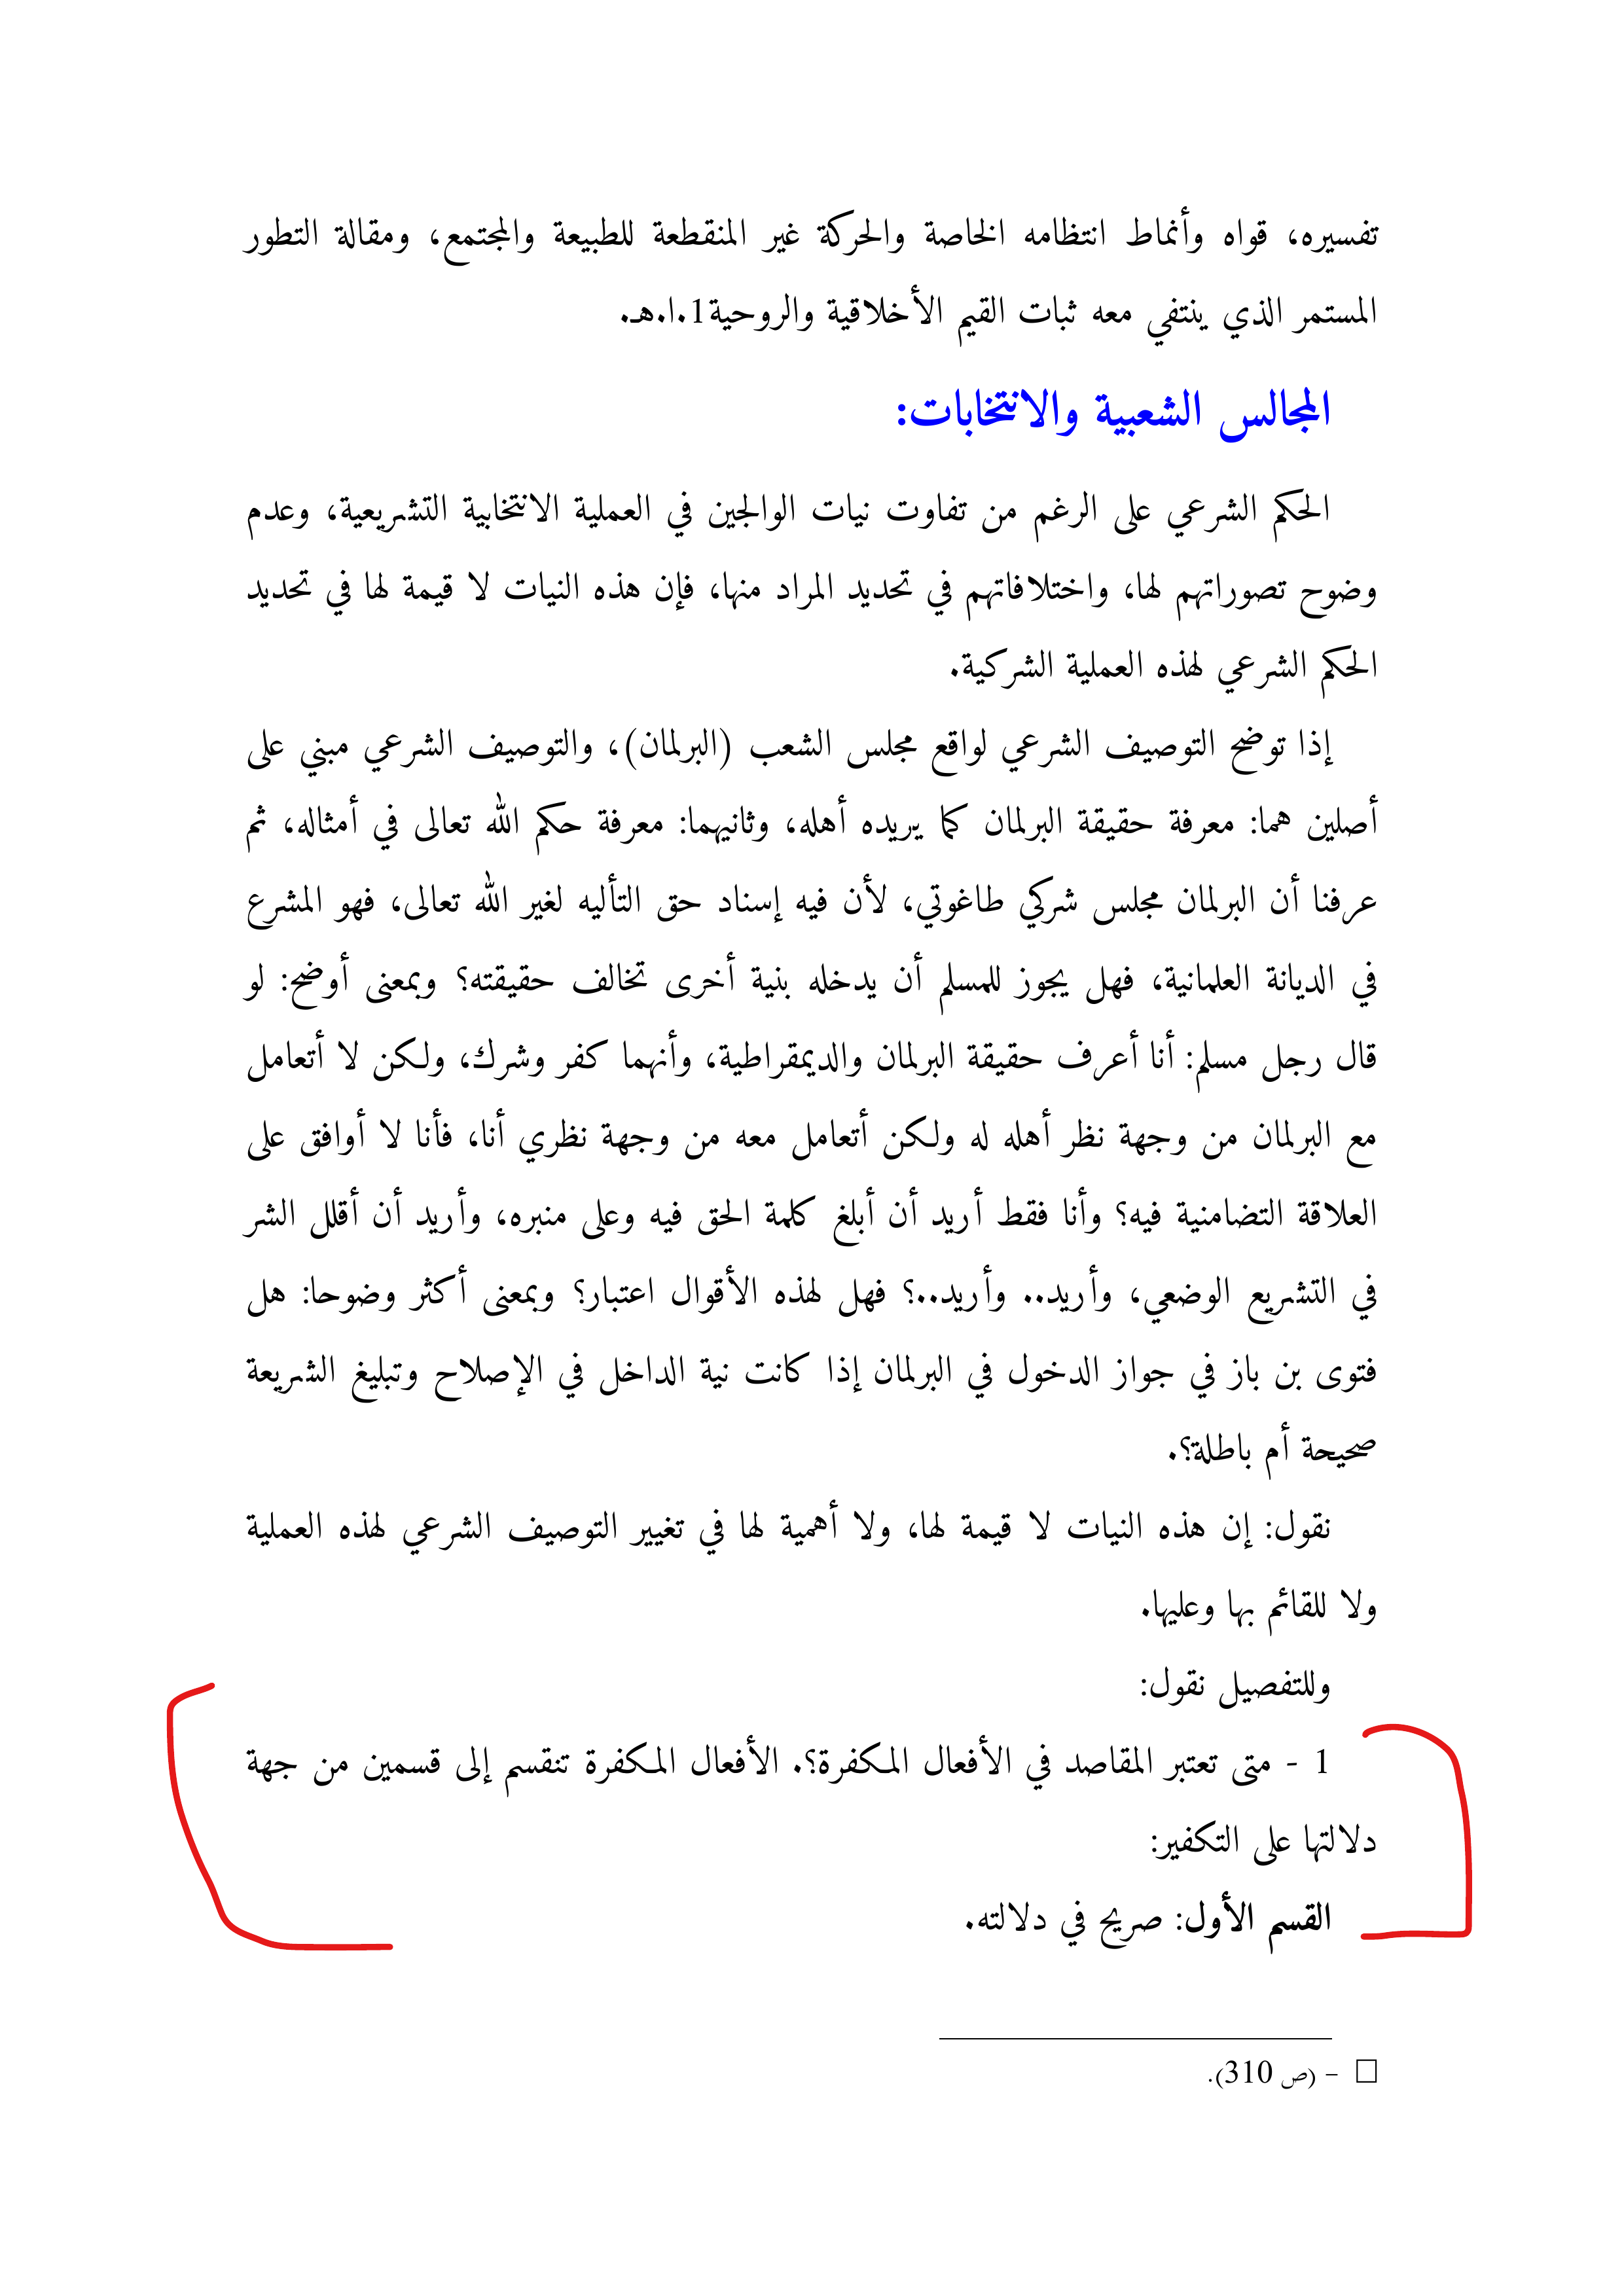 تفسيره، قواه وأنماط انتظامه الخاصة والحركة غير المنقطعة للطبيعة والمجتمع، ومقالة التطور
المستمر الذي ينتفي معه ثبات القيم الأخلاقية والروحية1.ا.هـ.
المجالس الشعبية والانتخابات:
الحكم الشرعي على الرغم من تفاوت نيات الوالجين في العملية الانتخابية التشريعية، وعدم
وضوح تصوراتهم لها، واختلافاتهم في تحديد المراد منها، فإن هذه النيات لا قيمة لها في تحديد
الحكم الشرعي لهذه العملية الشركية.
إذا توضح التوصيف الشرعي لواقع مجلس الشعب (البرلمان)، والتوصيف الشرعي مبني على
أصلين هما: معرفة حقيقة البرلمان كما يريده أهله، وثانيهما: معرفة حكم الله تعالى في أمثاله، ثم
عرفنا أن البرلمان مجلس شركي طاغوتي، لأن فيه إسناد حق التأليه لغير الله تعالى، فهو المشرع
في الديانة العلمانية، فهل يجوز للمسلم أن يدخله بنية أخرى تخالف حقيقته؟ وبمعنى أوضح: لو
قال رجل مسلم: أنا أعرف حقيقة البرلمان والديمقراطية، وأنهما كفر وشرك، ولكن لا أتعامل
مع البرلمان من وجهة نظر أهله له ولكن أتعامل معه من وجهة نظري أنا، فأنا لا أوافق على
العلاقة التضامنية فيه؟ وأنا فقط أريد أن أبلغ كلمة الحق فيه وعلى منبره، وأريد أن أقلل الشر
في التشريع الوضعي، وأريد.. وأريد..؟ فهل لهذه الأقوال اعتبار؟ وبمعنى أكثر وضوحا: هل
فتوى بن باز في جواز الدخول في البرلمان إذا كانت نية الداخل في الإصلاح وتبليغ الشريعة
صحيحة أم باطلة؟.
نقول: إن هذه النيات لا قيمة لها، ولا أهمية لها في تغيير التوصيف الشرعي لهذه العملية
ولا للقائم بها وعليها.
وللتفصيل نقول:
1 - متى تعتبر المقاصد في الأفعال المكفرة؟. الأفعال المكفرة تنقسم إلى قسمين من جهة
دلالتها على التكفير:
القسم الأول: صريح في دلالته.
□ - (ص 310).